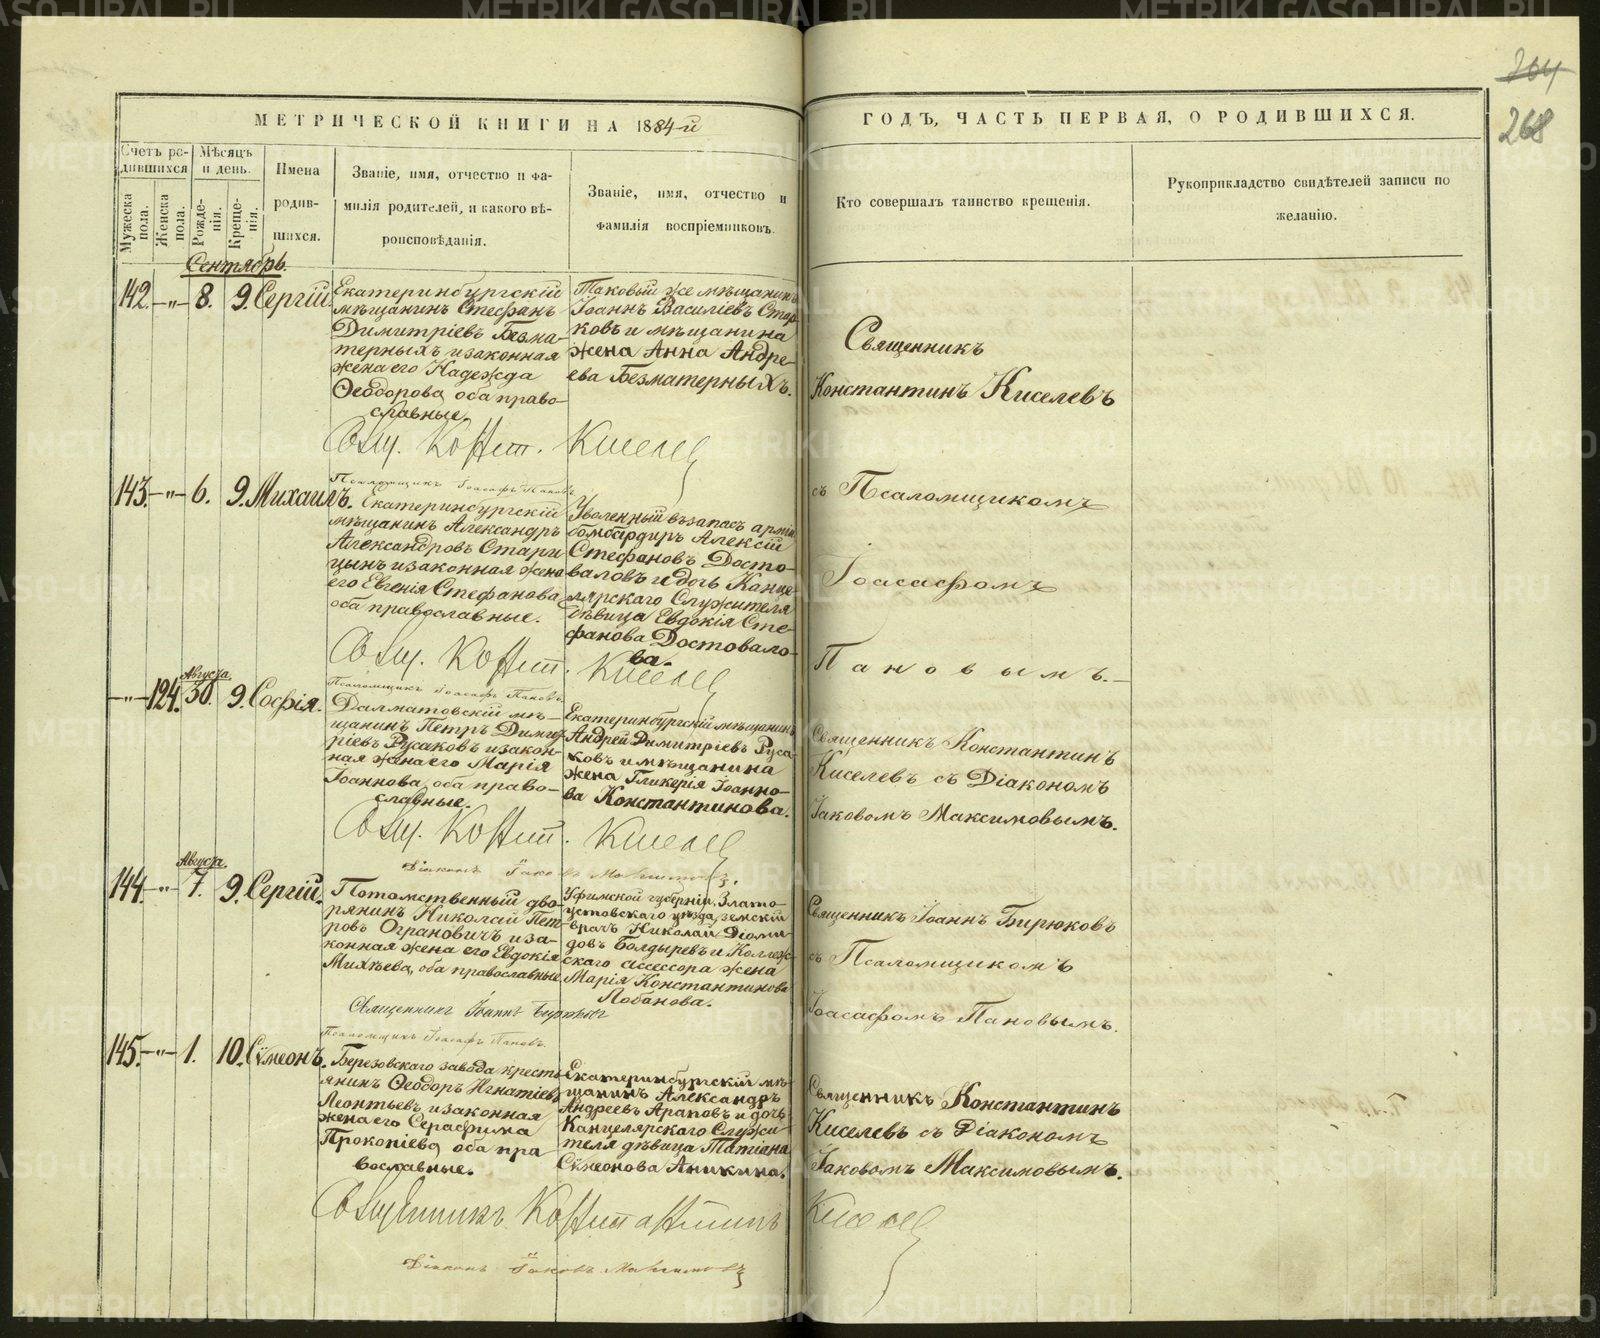 264
268
МЕТРИЧЕСКОЙ КНИГИ НА 1884-й
ГОДЪ, ЧАСТЬ ПЕРВАЯ, О РОДИВШИХСЯ.
Счетъ ро-
дившихся
Мужеска пола.
Женска пола.
Мѣсяцъ
и день.
Рожде-
нія.
Креще-
нія.
Имена
родив-
шихся.
Званіе, имя, отчество и фа-
милія родителей, и какого вѣ-
роисповѣданія.
Званіе, имя, отчество и
фамилія воспріемниковъ.
Кто совершалъ таинство крещенія.
Рукоприкладство свидѣтелей записи по
желанію.
Сентябрь.
142. -„- 8. 9. Сергій.
Екатеринбургскій
мѣщанинъ Стефанъ
Димитріевъ Безма-
терныхъ и законная
жена его Надежда
Ѳеодорова, оба право-
славные.
Таковый же мѣщанинъ
Іоаннъ Василіевъ
ковъ и мѣщанина
жена Анна Андре-
ева Безматерныхъ.
Священникъ
Константинъ Киселевъ
Свящ. Конст. Киселев
Псаломщикъ Іоасафъ Пановъ
143. -„- 6. 9. Михаилъ.
Екатеринбургскій
мѣщанинъ Александръ
Александровъ Стари
цынъ и законная жена
его Евгенія Стефанова
оба православные.
Уволенный въ запасъ арміи
бомбардиръ Алексій
Стефановъ Досто-
валовъ и дочь Канце
лярскаго Служителя
дѣвица Евдокія Сте-
фанова Достовало-
ва.
съ Псаломщикомъ
Іоасафомъ
Пановымъ.
Свящ. Конст. Киселев
Псаломщикъ Іоасафъ Пановъ
Августа.
-„- 124. 30. 9. Софія.
Далматовскій мѣ-
щанинъ Петръ Димит
ріевъ Русаковъ и закон-
ная жена его Марія
Іоаннова, оба право-
славные.
Екатеринбургскій мѣщанинъ
Андрей Димитріевъ Руса-
ковъ и мѣщанина
жена Гликерія Іоанно-
ва Константинова.
Священникъ Константинъ
Киселевъ съ Діакономъ
Іаковомъ Максимовымъ.
Свящ. Конст. Киселев
Діаконъ Іаковъ Максимовъ.
Августа.
144. -„- 7. 9. Сергій.
Потомственный дво-
рянинъ Николай Пет
ровъ Ограновичъ и за-
конная жена его Евдокія
Михѣева, оба православные
Уфимской губерніи, Злато-
устовскаго уѣзда, земскій
врачъ Николай Діоми-
довъ Болдыревъ и Коллеж-
скаго ассессора жена
Марія Константинова
Лобанова.
Священникъ Іоаннъ Бирюковъ
съ Псаломщикомъ
Іоасафомъ Пановымъ.
Священникъ Іоаннъ Бирюковъ
Псаломщикъ Іоасафъ Пановъ.
145. -„- 1. 10. Сѵмеонъ.
Березовскаго завода кресть
янинъ Ѳеодоръ Игнатіевъ
Леонтьевъ и законная
жена его Серафима
Прокопіева, оба пра
вославные.
Екатеринбургскій мѣ-
щанинъ Александръ
Андреевъ Араповъ и дочь
Канцелярскаго Служи-
теля дѣвица Татіана
Сѵмеонова Аникина.
Священникъ Константинъ
Киселевъ съ Діакономъ
Іаковомъ Максимовымъ.
Священникъ Константинъ Киселев
Діаконъ Іаковъ Максимовъ
METRIKI.GASO-URAL.RU